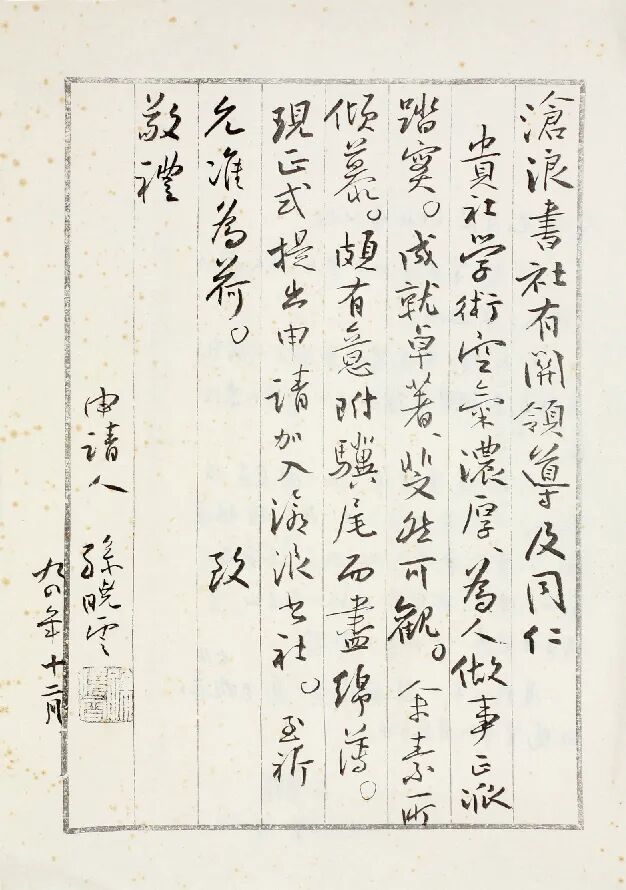 滄浪書社有關領導及同仁
貴社學術空氣濃厚、為人做事正派
踏实。成就卓著、斐然可觀。余素所
傾慕。頗有意附驥尾而盡綿薄。
現正式提出申請加入滄浪书社。至祈
允准為荷。 致
敬禮
申請人 孫晓雲
九四年十二月